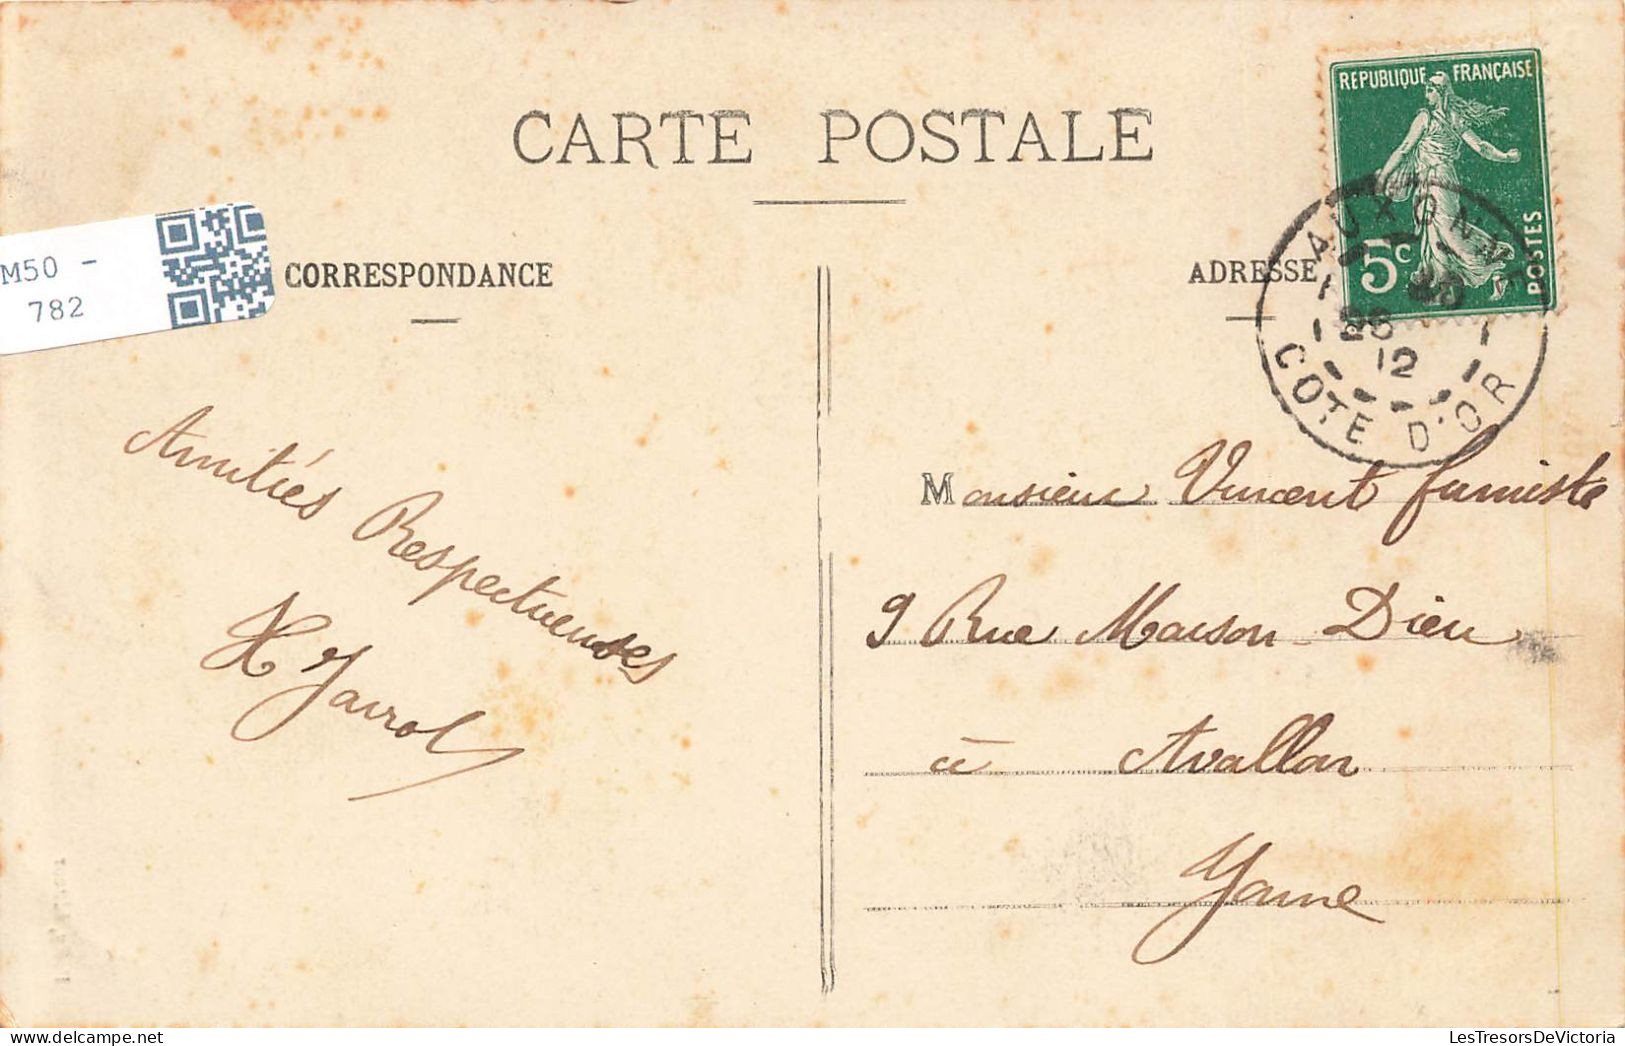 CARTE POSTALE
M50 -
782
CORRESPONDANCE
ADRESSE
REPUBLIQUE FRANÇAISE
5c
POSTES
AUXONNE
12
COTE D'OR
Amitiés Respectueuses
H Jarrot
Monsieur Vincent fumiste
9 Rue Maison-Dieu
à Avallon
Yonne
LesTresorsDeVictoria